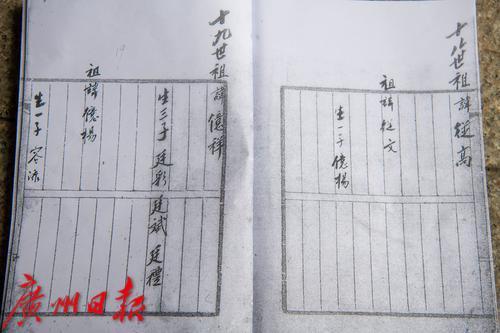 十八世祖諱從高
祖諱從文
生一子 億楊
十九世祖諱 億祥
生三子 廷彩 廷斌 廷禮
祖諱億楊
生一子 容添
廣州日報